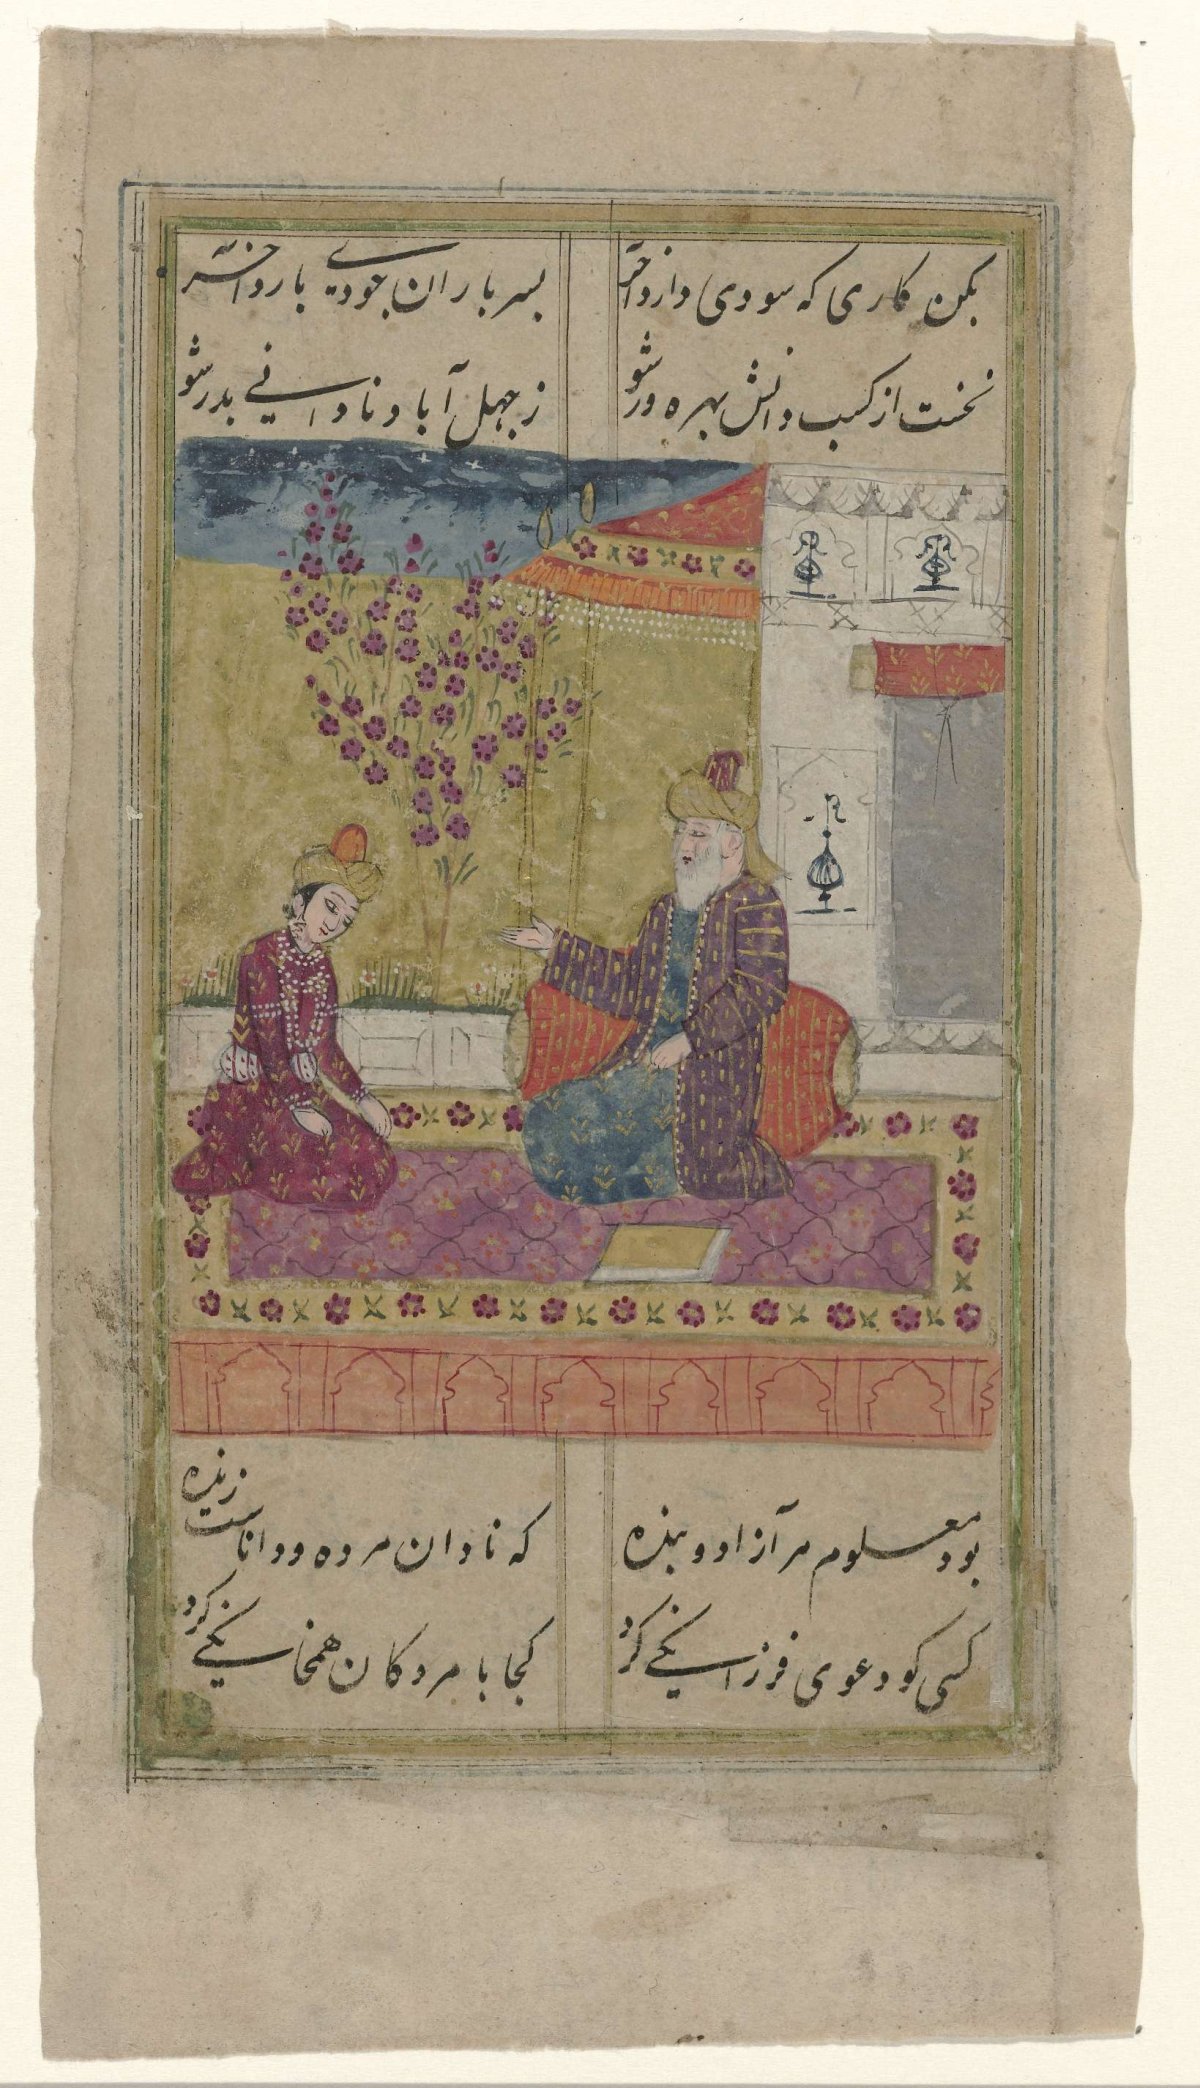 بکن کاری که سودی دارد آخر بسر باران جودی بارد آخر
نخست از کسب دانش بهره ور شو ز جهل آباد نادانی بدر شو
بود معلوم مر آزاد و بنده که نادان مرده و داناست زنده
کسی کو دعوی فرزانکی کرد کجا با مردکان همخانکی کرد